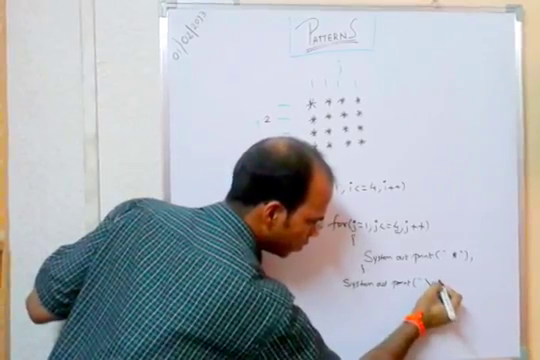 01/02/2017
PATTERNS
* * * *
2 * * * *
* * * *
* * * *
1, i<=4, i++)
for(j=1, j<=4, j++)
{
System out print(" *"),
}
System out print("\